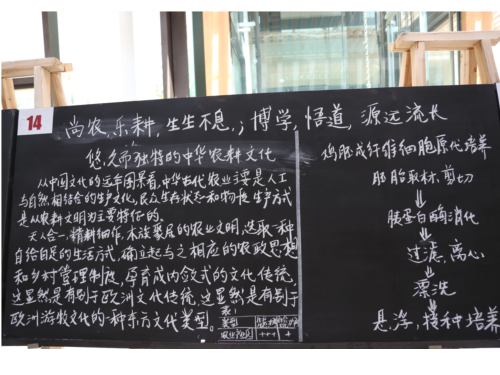 14
尚农,乐耕,生生不息,;博学,悟道,源远流长
悠久而独特的中华农耕文化
从中国文化的远年图景看,中华古代农业主要是人工
与自然相结合的生产文化,民众生存状态和物质生产方式
是以农耕文明为主要特征的。
天人合一,精耕细作,木族聚居的农业文明,选取一种
自给自足的生活方式,确立起与之相应的农政思想
和乡村管理制度,孕育成内敛式的文化传统,
这显然是有别于欧洲文化传统,这显然是有别于
欧洲游牧文化的一种东方文化类型。
表:
类型
+++ +
鸡胚成纤维细胞原代培养
胚胎取材,剪切
胰蛋白酶消化
过滤,离心
漂洗
悬浮,接种培养